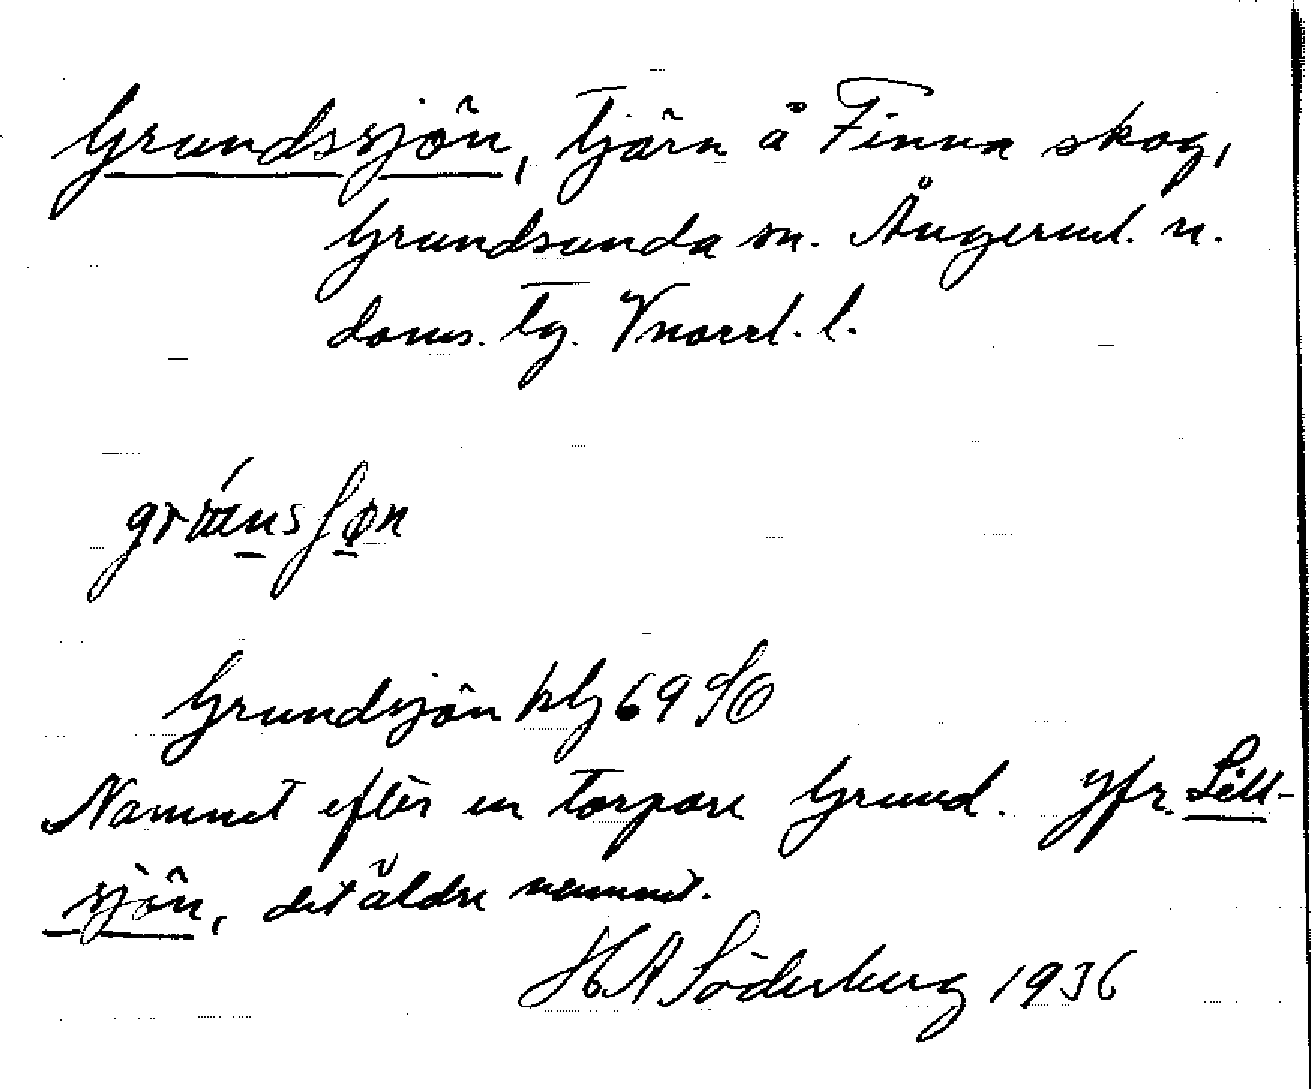 Grundssjön, Tjärn å Finna skog,
Grundsunda sn. Ångerml. n.
doms. tg. Vnorrl. l.
Grundsjön blg 69 SO
Namnet efter en torpare Grund. Jfr. Lill-
sjön, det äldre namnet.
HA Söderberg 1936